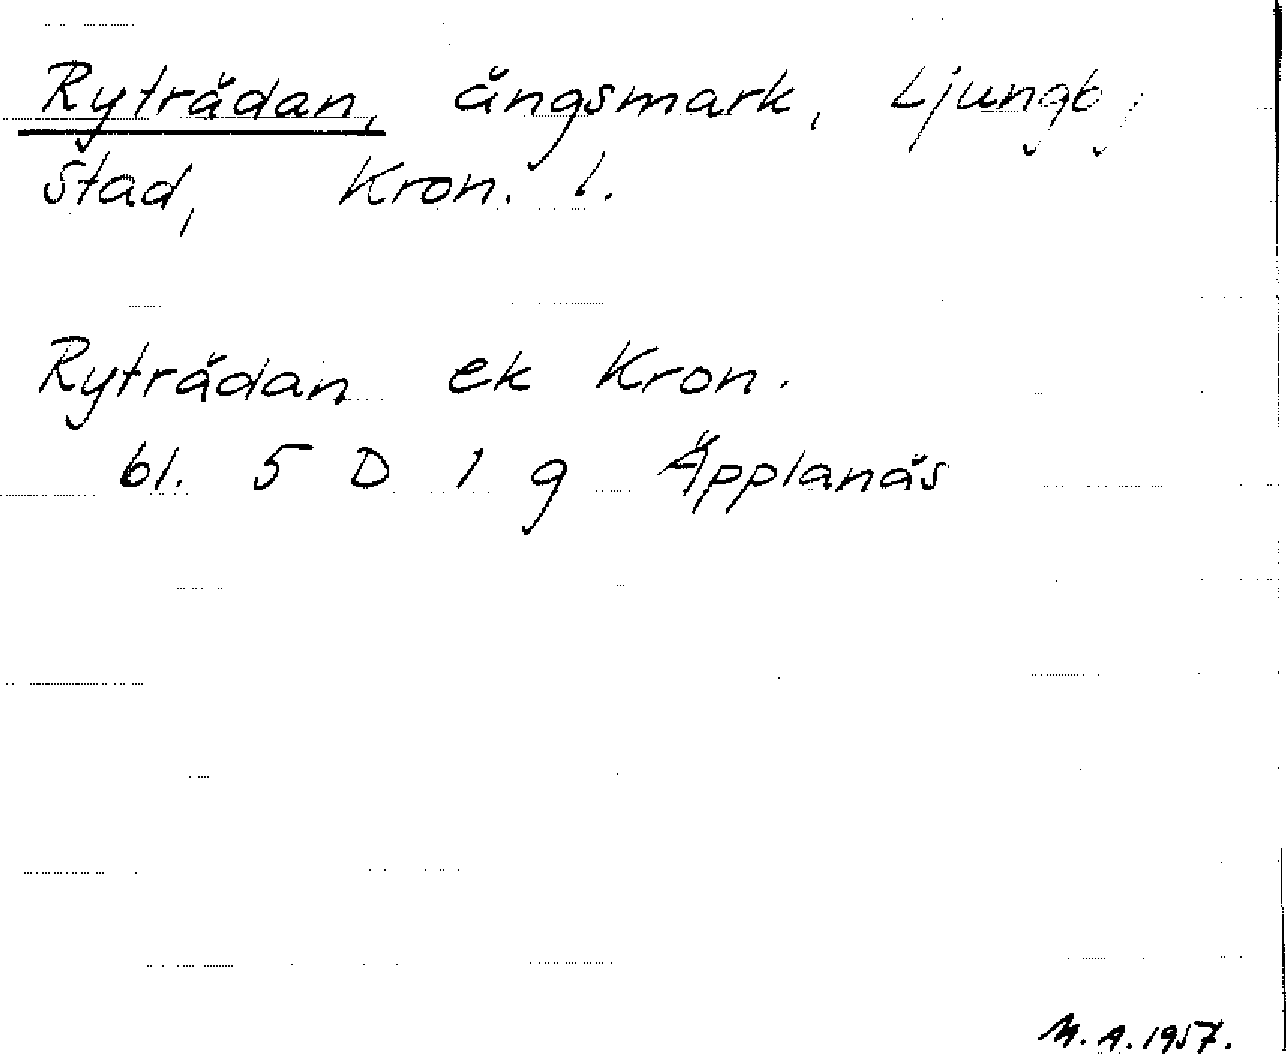 Ryträdan, ängsmark, Ljungby
stad, Kron. l.
Ryträdan ek Kron.
bl. 5 D 1 g Äpplanäs
M. A. 1957.